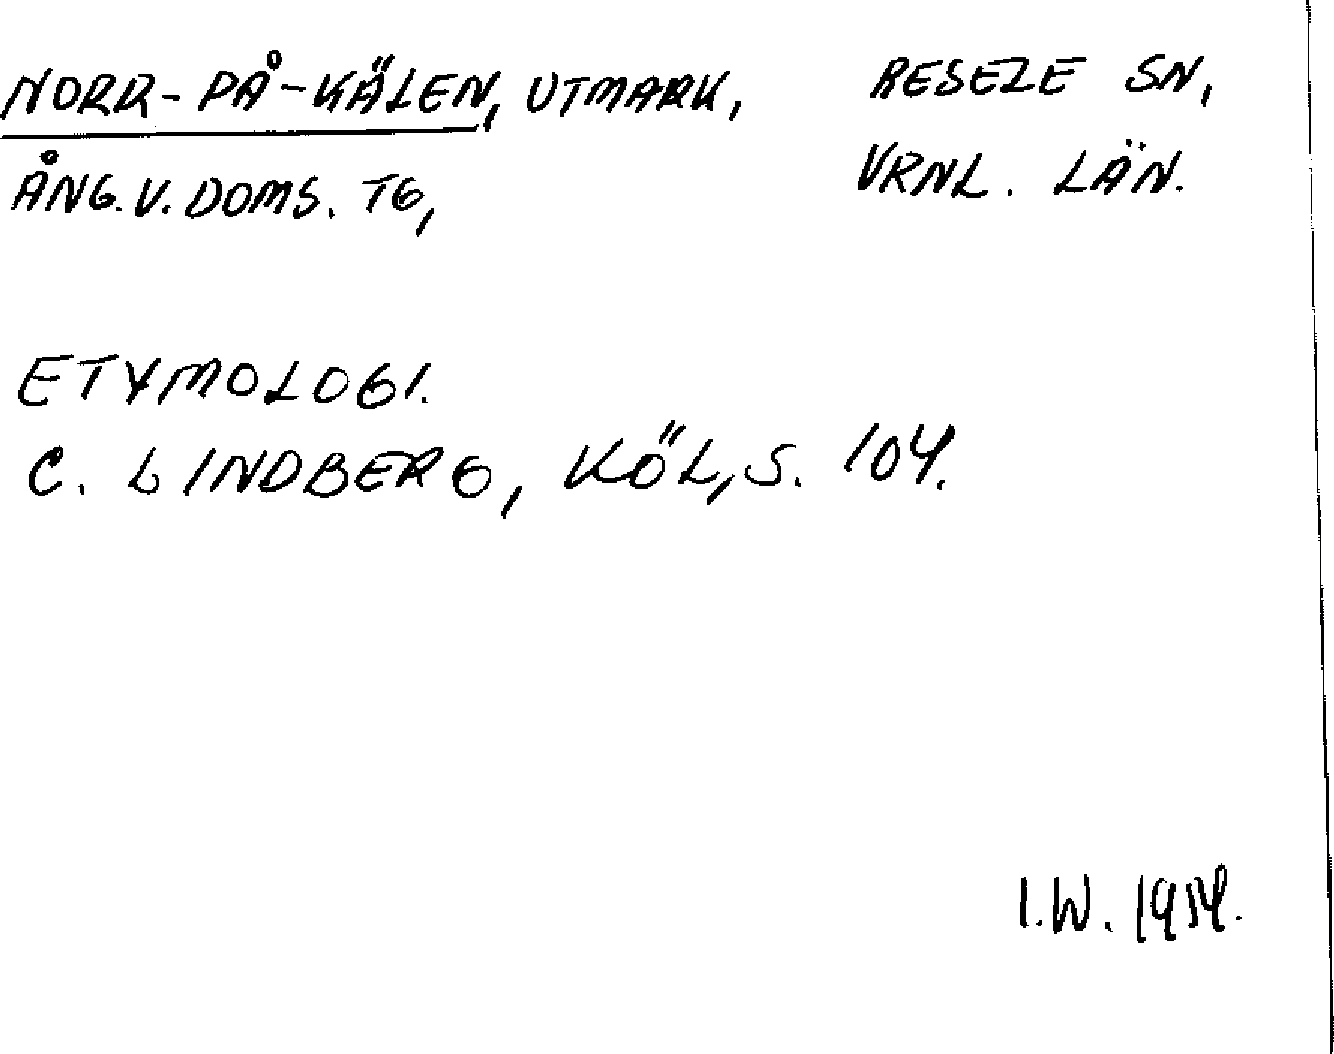 NORR-PÅ-KÄLEN, UTMARK, RESELE SN,
ÅNG. V. DOMS. TG, VRNL. LÄN.
ETYMOLOGI.
C. LINDBERG, KÖL, S. 104.
I.W. 1954.